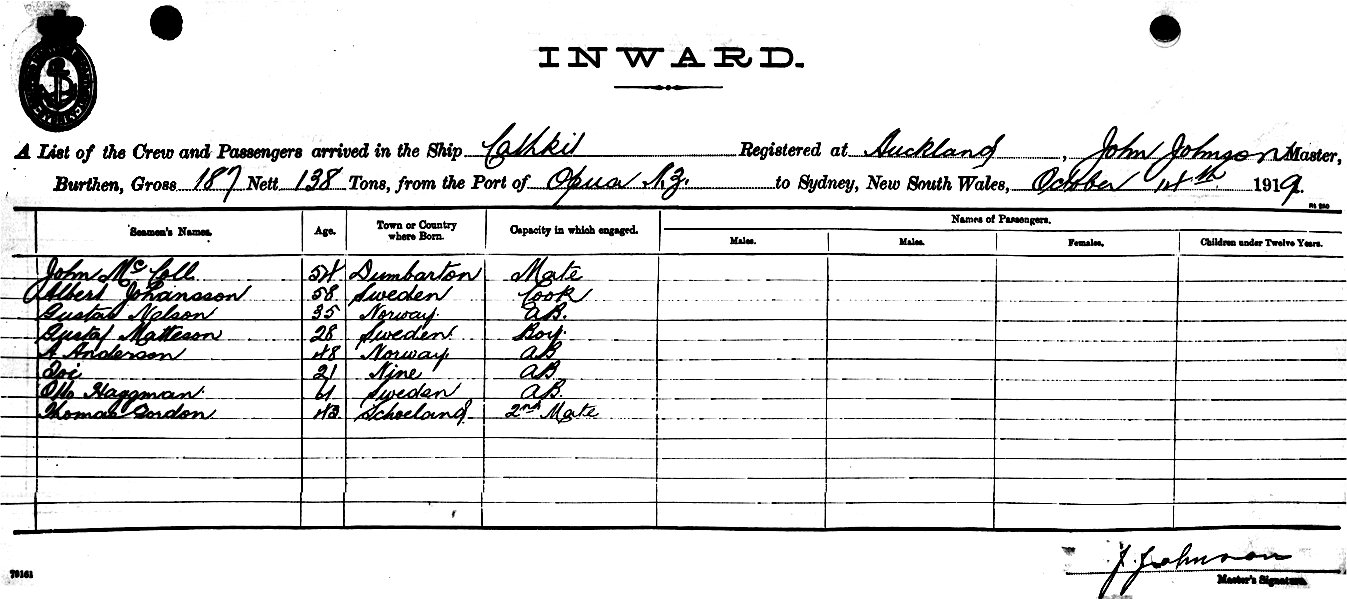 INWARD.
A List of the Crew and Passengers arrived in the Ship Cathkit Registered at Auckland, John Johnson Master,
Burthen, Gross 187 Nett 138 Tons, from the Port of Opua N.Z. to Sydney, New South Wales, October 14th 1919.
Seamen's Names. Age. Town or Country where Born. Capacity in which engaged. Names of Passengers.
Males. Males. Females. Children under Twelve Years.
John McColl 54 Dumbarton Mate
Albert Johansson 58 Sweden Cook
Gustav Nelson 35 Norway. AB.
Gustaf Matteson 28 Sweden Boy.
A Anderson 48 Norway AB
21 Nine AB
Otto Haggman 61 Sweden AB.
Thomas Gordon 43 2nd Mate
J. Johnson
Master's Signature.
79161